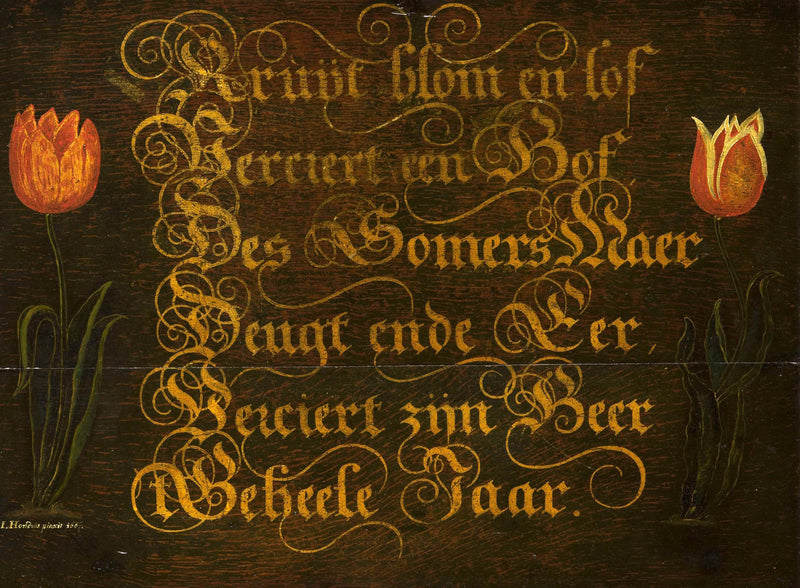 Kruÿt blom en lof
Verciert een Hof,
Des Somers Maer
Deugt ende Eer,
Verciert zijn Heer
tGeheele Jaar.
I. pinxit